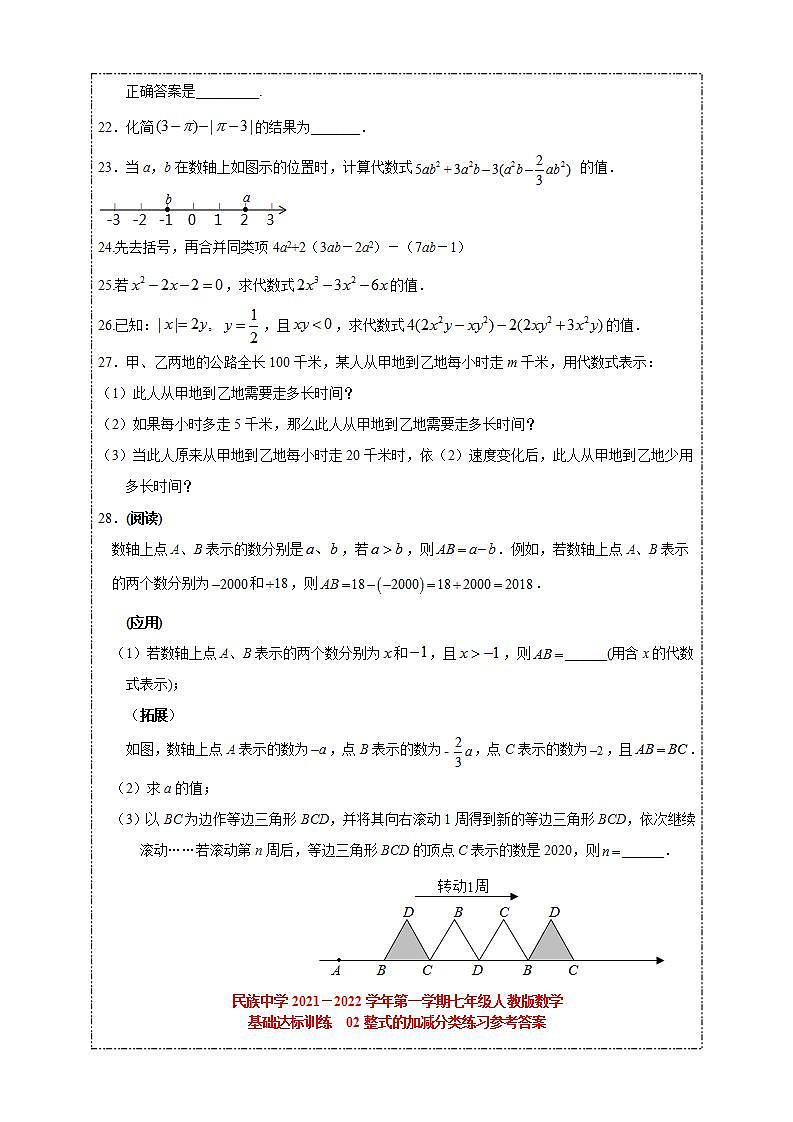 正确答案是_________.
22．化简(3－π)－|π－3|的结果为_______．
23．当 a，b 在数轴上如图示的位置时，计算代数式5ab²＋3a²b－3(a²b－2/3 ab²) 的值．
b a
-3 -2 -1 0 1 2 3
24.先去括号，再合并同类项 4a²+2（3ab－2a²）－（7ab－1）
25.若x²－2x－2＝0，求代数式2x³－3x²－6x的值．
26.已知：|x|＝2y， y＝1/2，且xy＜0，求代数式4(2x²y－xy²)－2(2xy²＋3x²y)的值．
27．甲、乙两地的公路全长 100 千米，某人从甲地到乙地每小时走 m 千米，用代数式表示：
（1）此人从甲地到乙地需要走多长时间？
（2）如果每小时多走 5 千米，那么此人从甲地到乙地需要走多长时间？
（3）当此人原来从甲地到乙地每小时走 20 千米时，依（2）速度变化后，此人从甲地到乙地少用
多长时间？
28．(阅读)
数轴上点 A、B 表示的数分别是a、b，若a＞b，则AB＝a－b．例如，若数轴上点 A、B 表示
的两个数分别为－2000和+18，则AB＝18－(－2000)＝18＋2000＝2018．
(应用)
（1）若数轴上点 A、B 表示的两个数分别为x和－1，且x＞－1，则AB＝______(用含 x 的代数
式表示)；
（拓展）
如图，数轴上点 A 表示的数为－a，点 B 表示的数为－2/3 a，点 C 表示的数为－2，且AB＝BC．
（2）求 a 的值；
（3）以 BC 为边作等边三角形 BCD，并将其向右滚动 1 周得到新的等边三角形 BCD，依次继续
滚动……若滚动第 n 周后，等边三角形 BCD 的顶点 C 表示的数是 2020，则n＝______．
转动1周
D B C D
A B C D B C
民族中学 2021－2022 学年第一学期七年级人教版数学
基础达标训练 02 整式的加减分类练习参考答案